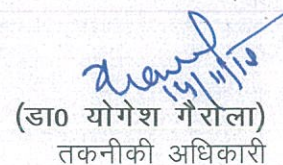 14/11/18
(डा0 योगेश गैरोला)
तकनीकी अधिकारी